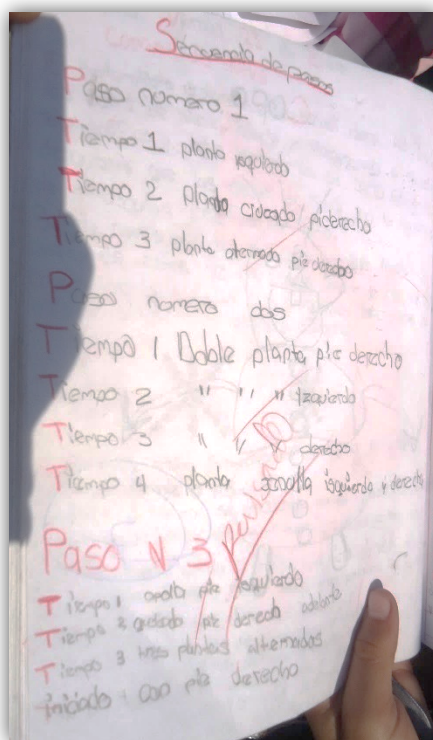 Secuencia de pasos
Paso numero 1
Tiempo 1 planta
Tiempo 2 planta pie derecho
Tiempo 3 planta alternado pie derecho
Paso numero dos
Tiempo 1 Doble planta pie derecho
Tiempo 2 " " " Izquierdo
Tiempo 3 " " " derecho
Tiempo 4 planta izquierdo y derecho
Revisado
Paso N 3
Tiempo 1 pie izquierdo
Tiempo 2 pie derech adelante
Tiempo 3 tres plantas alternadas
iniciado con pie derecho